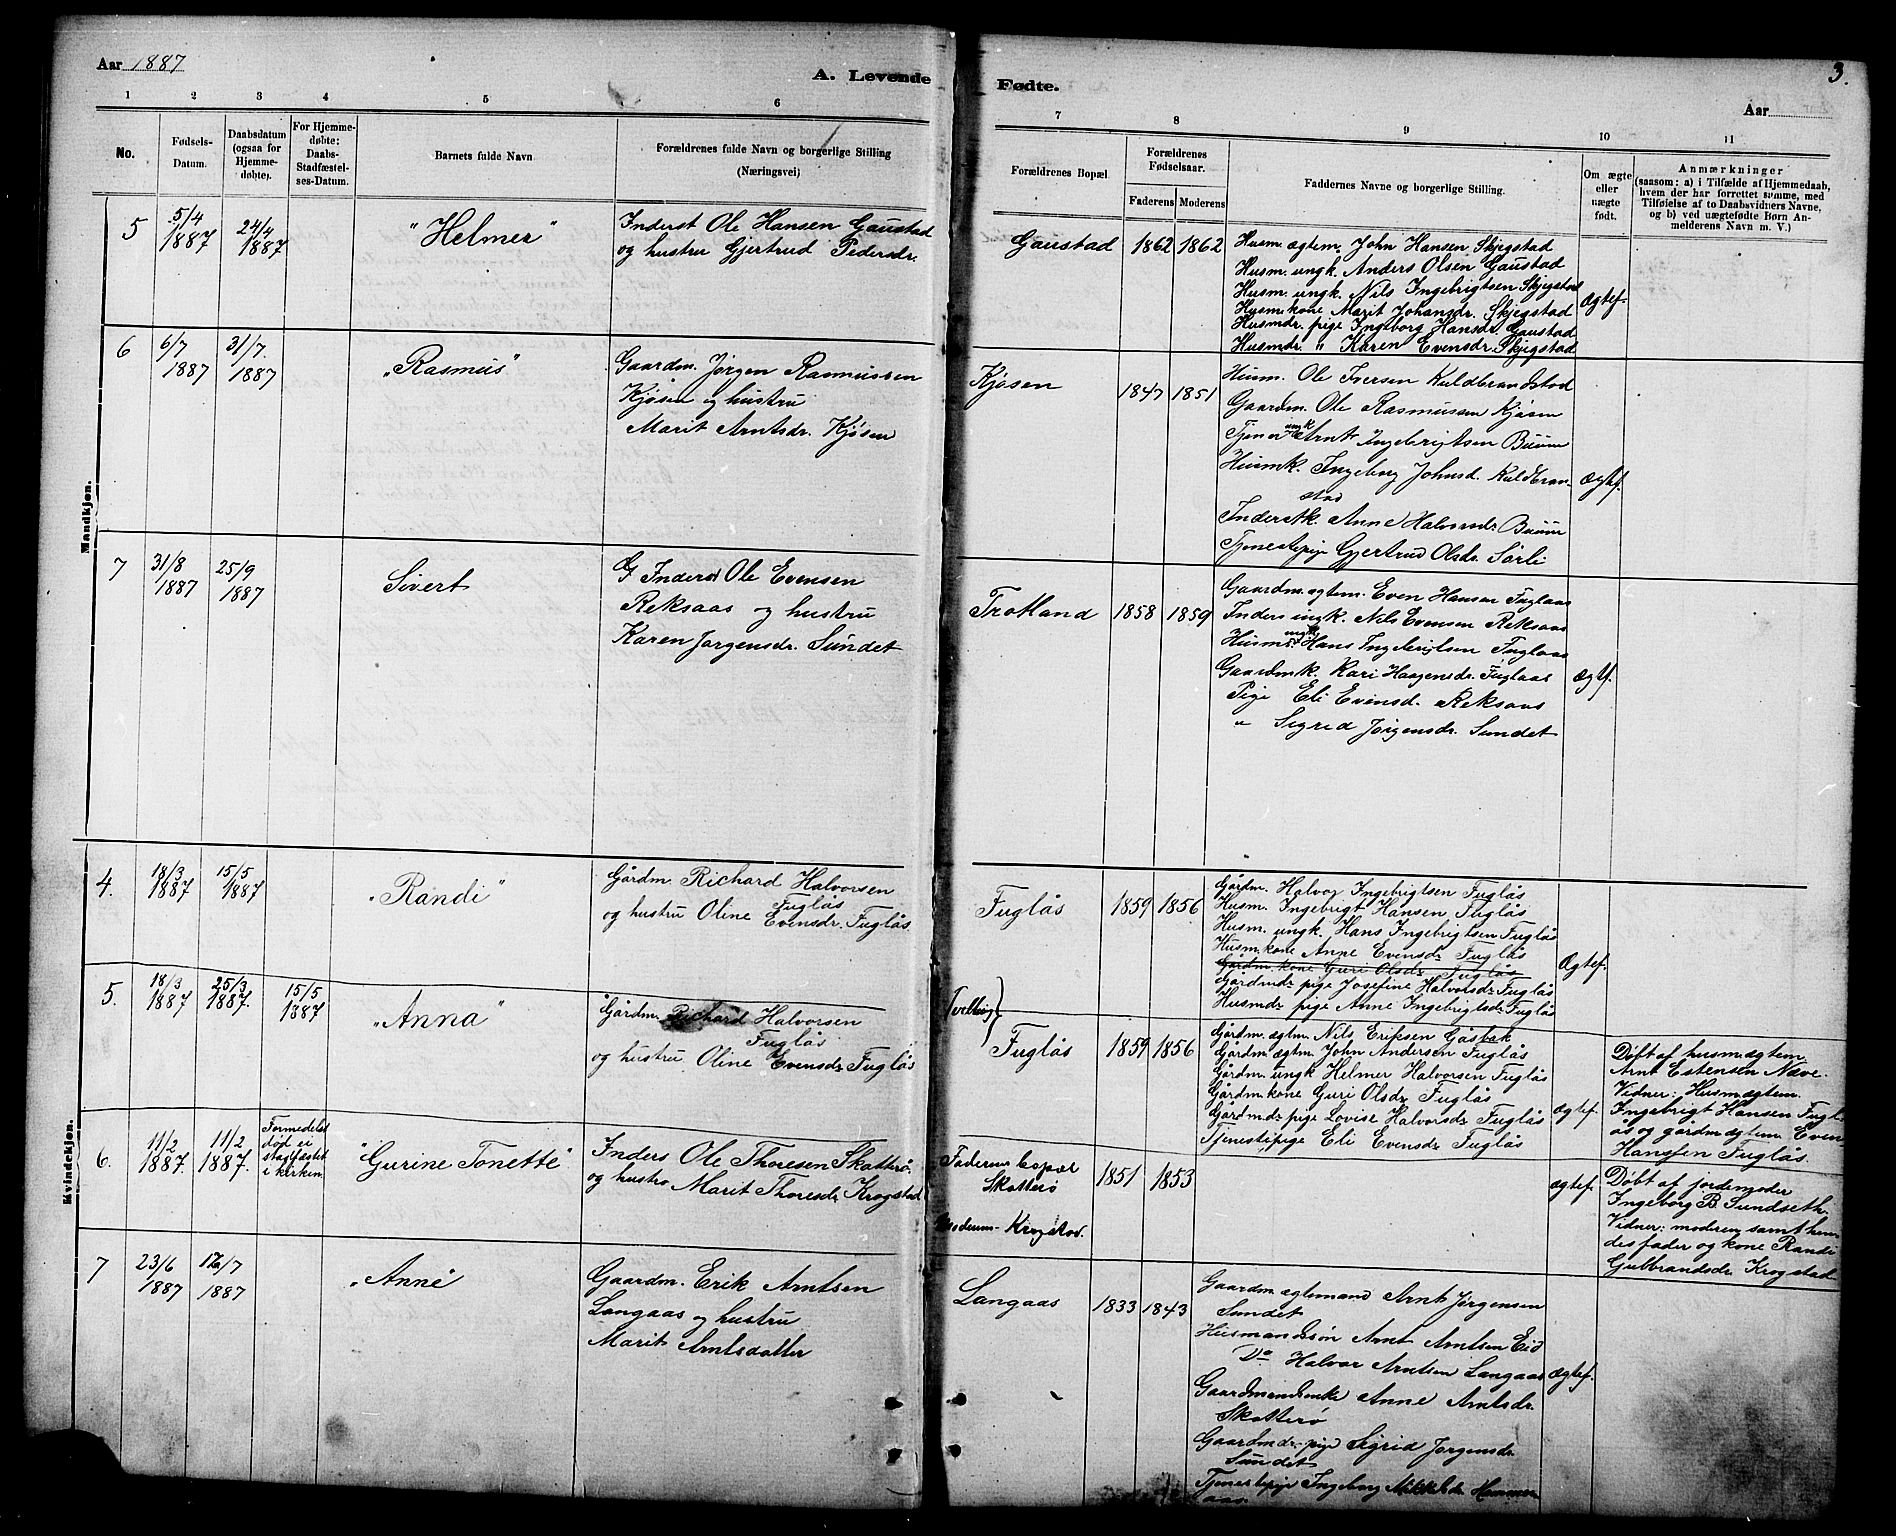 Aar 1887
A. Levende Fødte.
3.
Aar
1 2 3 4 5 6 7 8 9 10 11
No.
Fødsels-
Datum.
Daabsdatum
(ogsaa for
Hjemme-
døbte).
For Hjemme-
døbte:
Daabs-
Stadfæstel-
ses-Datum.
Barnets fulde Navn
Forældrenes fulde Navn og borgerlige Stilling
(Næringsvei)
Forældrenes Bopæl.
Forældrenes
Fødselsaar.
Faderens Moderens
Faddernes Navne og borgerlige Stilling.
Om ægte
eller
uægte
født.
Anmærkninger
(saasom: a) i Tilfælde af Hjemmedaab,
hvem der har forrettet samme, med
Tilføielse af to Daabsvidners Navne,
og b) ved uægtefødte Børn An-
melderens Navn m. V.)
Mandkjøn.
5
5/4
1887
24/4
1887
"Helmer"
Inderst Ole Hansen Gaustad
og hustru Gjertrud Pedersdr.
Gaustad
1862 1862
Husm. ægtem. John Hansen Skjegstad
Husm. ungk. Anders Olsen Gaustad
Husm. ungk. Nils Ingebrigtsen Skjegstad
Husm. kone Marit Johansdr. Skjegstad
Husmdr. pige Ingeborg Hansdr. Gaustad
Husmdr. " Karen Evensdr. Skjegstad
Ægtef.
6
6/7
1887
31/7.
1887
"Rasmus"
Gaardm. Jørgen Rasmussen
Kjøsen og hustru
Marit Arntsdr. Kjøsen
Kjøsen
1847 1851
Husm. Ole Iversen Kuldbrandstad
Gaardm. Ole Rasmussen Kjøsen
Tjener ungk Arnt Ingebrigtsen Buum
Husmk. Ingeborg Johnsd. Kuldbran-
stad
Inderstk. Anne Halvorsdr. Buum
Tjenestepige Gjertrud Olsdr. Sørli
Ægtef.
7
31/8
1887
25/9
1887
Sivert
Inderst Ole Evensen
Reksaas og hustru
Karen Jørgensdr. Sundet
Trotland
1858 1859
Gaardm. ægtem. Even Hansen Fuglaas
Inders ungk. Nils Evensen Reksaas
Husm. ungk Hans Ingebrigtsen Fuglaas
Gaardmk. Kari Haagensdr. Fuglaas
Pige Eli Evensd. Reksaas
" Sigrid Jørgensdr. Sundet
Ægtf.
Kvindekjøn.
4.
18/3
1887
15/5
1887
"Randi"
Gårdm. Richard Halvorsen
Fuglås
og hustru Oline Evensdr. Fuglås
Fuglås
1859 1856
Gårdm. Halvor Ingebrigtsen Fuglås
Husm. Ingebrigt Hansen Fuglås
Husm. ungk. Hans Ingebrigtsen Fuglås
Husm. kone Anne Evensdr. Fuglås
Gårdm. kone Guri Olsdr. Fuglås
Gårdmdr pige Josefine Halvorsdr. Fuglås
Husmdr pige Anne Ingebrigtsdr. Fuglås
Ægtef.
Tvilling
5.
18/3
1887
25/3
1887.
15/5
1887
"Anna"
Gårdm. Richard Halvorsen
Fuglås
og hustru Oline Evensdr Fuglås
Fuglås
1859 1856
Gårdm. ægtm. Nils Eriksen Gåsbak
Gårdm. ægtm. John Andersen Fuglås
Gårdm. ungk Helmer Halvorsen Fuglås
Gårdm. kone Guri Olsdr Fuglås
Gårdmdr pige Lovise Halvorsdr Fuglås
Tjenestepige Eli Evensdr Fuglås
Ægtef.
Døbt af husm ægtem.
Arnt Estensen Næve.
Vidner: Husm ægtem.
Ingebrigt Hansen Fugl-
ås og gårdm ægtem. Even
Hanssen Fuglås.
6.
11/2
1887.
11/2
1887.
Formedelst
død ei
stadfæstet
i kirken
"Gurine Tonette"
Inders Ole Thoresen Skotterø
og hustro Marit Thoresdr. Krogstad
Faderens bopæl
Skotterø
Moderens - Krogstad.
1851 1853
ægtef.
Døbt af jordemoder
Ingeborg B. Sundseth.
Vidner: moderen samt hen-
des fader og kone Randi
Gulbrandsdr. Krogstad
7
23/6
1887
17/7
1887
"Anne"
Gaardm. Erik Arntsen
Langaas og hustru
Marit Arntsdatter
Langaas
1833 1843
Gaardm ægtemand Arnt Jørgensen
Sundet
Husmandssøn Arnt Arntsen Eid
Do Halvor Arntsen Langaas
Gaardmandsenke Anne Arntsdr.
Skotterø
Gaardmdr. pige Sigrid Jørgensdr.
Sundet
Tjenestepige Ingeborg Mikkelsdr. Hammer-
aas.
Ægtef.